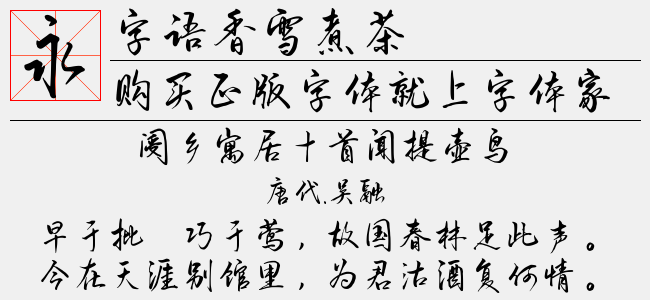 永
字语香雪煮茶
购买正版字体就上字体家
阌乡寓居十首闻提壶鸟
唐代.吴融
早于批 巧于莺，故国春林足此声。
今在天涯别馆里，为君沽酒复何情。